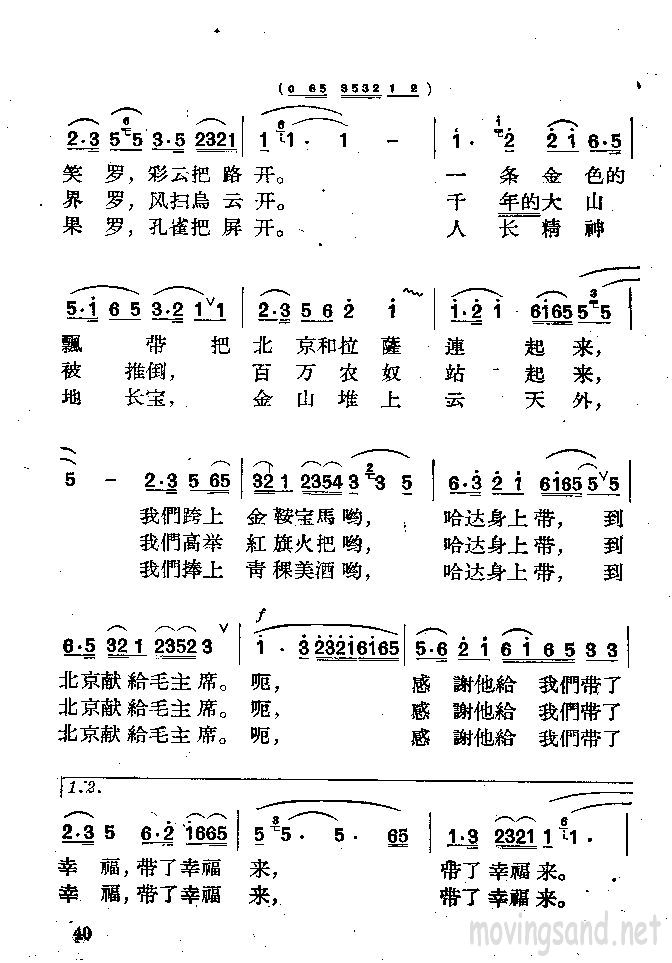 (0 65 3532 1 2)
2·3 5 5 3·5 2321 | 1 1· 1 - | 1· 2 2 1 6·5
笑 罗，彩云把 路 开。 一 条 金 色的
界 罗，风扫烏 云 开。 千 年的大 山
果 罗，孔雀把 屏 开。 人 长 精 神
5·1 6 5 3·2 1 V 1 | 2·3 5 6 2 1 | 1·2 1 6165 5 5
飄 带 把 北 京和拉 薩 連 起 来，
被 推倒， 百 万 农 奴 站 起 来，
地 长宝， 金 山 堆 上 云 天 外，
5 - 2·3 5 65 | 32 1 2354 3 3 5 | 6·3 2 1 6165 5 V 5
我們跨上 金 鞍宝馬 哟， 哈达身上 带， 到
我們高举 紅 旗火把 哟， 哈达身上 带， 到
我們捧上 青 稞美酒 哟， 哈达身上 带， 到
6·5 32 1 2352 3 V | f 1· 3 23216165 | 5·6 2 1 6 5 3 3
北京献 給毛主 席。 呃， 感 謝他給 我們带了
北京献 給毛主 席。 呃， 感 謝他給 我們带了
北京献 給毛主 席。 呃， 感 謝他給 我們带了
1.2.
2·3 5 6·2 1665 | 5 5· 5· 65 | 1·3 2321 1 1·
幸 福，带了幸福 来， 带了 幸福 来。
幸 福，带了幸福 来， 带了 幸福 来。
40
movingsand.net